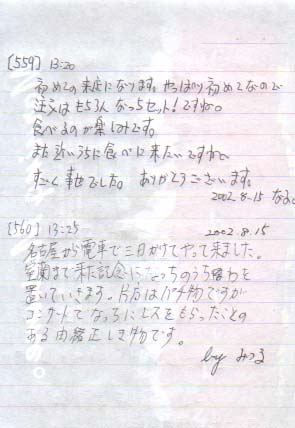 [559] 13:20
初めての来店になります。やっぱり初めてなので
注文はもちろんなっちセット!ですね。
食べるのが楽しみです。
また近いうちに食べに来たいですね。
すごく幸せでした。ありがとうございます。
2002.8.15
[560] 13:25 2002.8.15
名古屋から電車で三日かけてやって来ました。
室蘭まで来た記念になっちのうちわを
置いていきます。片方はパチ物ですが
コンサートでなっちにレスをもらったことの
ある由緒正しき物です。
by みつる